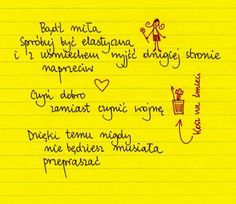 Bądź miła
Spróbuj być elastyczna
i z uśmiechem wyjść drugiej stronie
naprzeciw
Czyń dobro
zamiast czynić wojnę
Kosz na śmieci
Dzięki temu nigdy
nie będziesz musiała
przepraszać